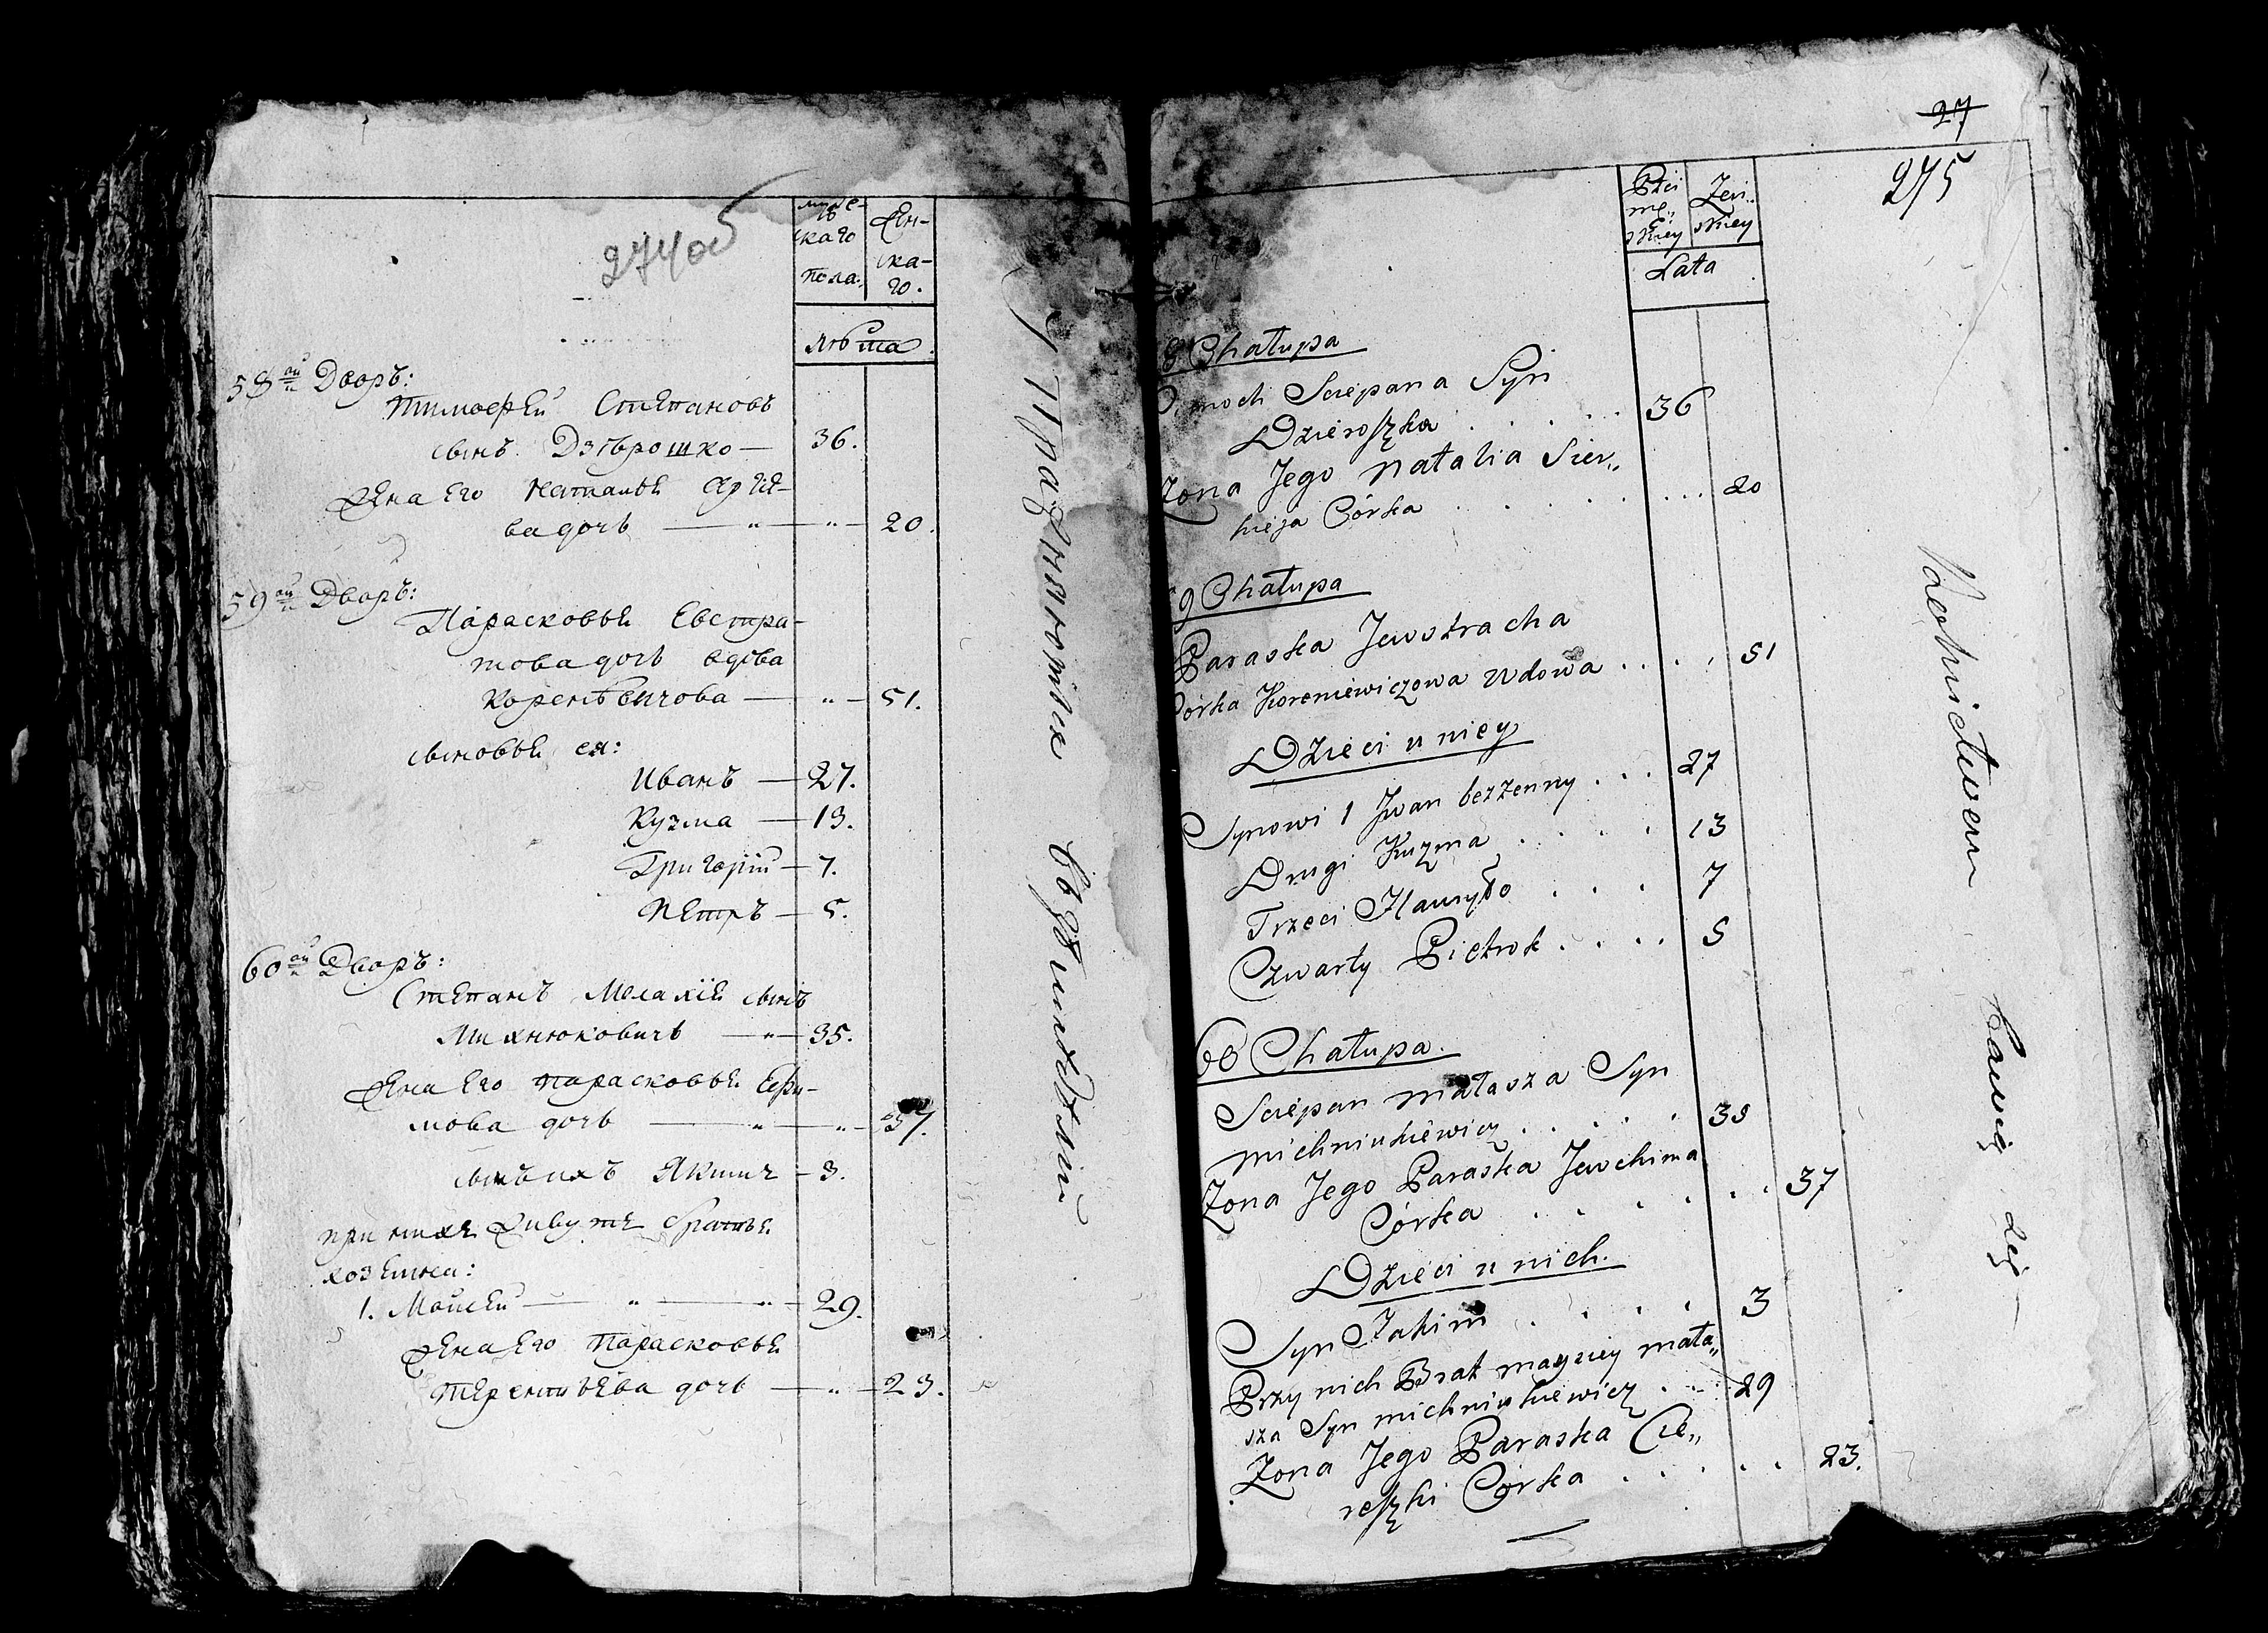 274 об
мужескаго пола:
женскаго.
лѣта
58ой Дворъ:
Тимоѳей Степановъ
сынъ Дзѣрошко — 36.
Жена Его Наталья Сергѣе-
ва дочь — " — " — 20.
59ой Дворъ:
Парасковья Евстра-
това дочь вдова
Коренѣвичова — " — 51.
сыновья ея:
Иванъ — 27.
Кузма — 13.
Григорій — 7.
Петръ — 5.
60ой Дворъ:
Степанъ Малахіе сынъ
Михнюковичь — " — 35.
Жена Его Парасковья Ефи-
мова дочь — " — " — 37.
сынъ ихъ Якимъ — 3.
при нихъ живутъ братья
хозяина:
1. Мойсей — " — " — 29.
Жена Его Парасковья
Терентьева дочь — " — 23.
27
275
Męzkiey
Żeńskiey
Lata
8 Chałupa
Cimoch Sciepana Syn
Dzieroszka . . . . . 36
Zona Jego Natalia Sier„
hieja Córka . . . . . . . 20
9 Chałupa
Paraska Jewstracha
Córka Koreniewiczowa Wdowa . . . . 51
Dzieci u niey
Synowi 1 Jwan bezżenny . . . 27
Drugi Kuzma . . . . 13
Trzeci Hauryło . . . 7
Czwarty Pietrok . . . . 5
60 Chałupa.
Sciepan Małasza Syn
Michniukiewicz . . . . . 35
Zona Jego Paraska Jewchima
Córka . . . . . . . 37
Dzieci u nich.
Syn Jakim . . . . 3
Przy nich Brat Mayziey Mała„
sza Syn Michniukiewicz . . . 29
Zona Jego Paraska Cie„
reszki Córka . . . . . . 23.